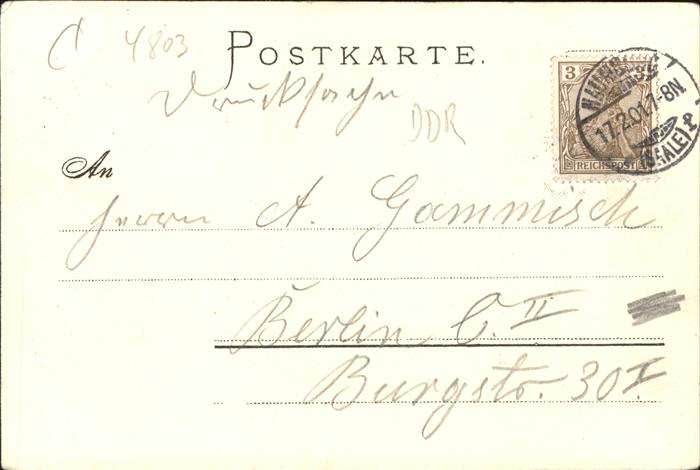 4803
POSTKARTE.
Drucksache
DDR
3 3
REICHSPOST
NAUMBURG
17.2.01.7-8N.
(SAALE)
An
Herrn A. Gammisch
Berlin C. II
Burgstr. 30 I.